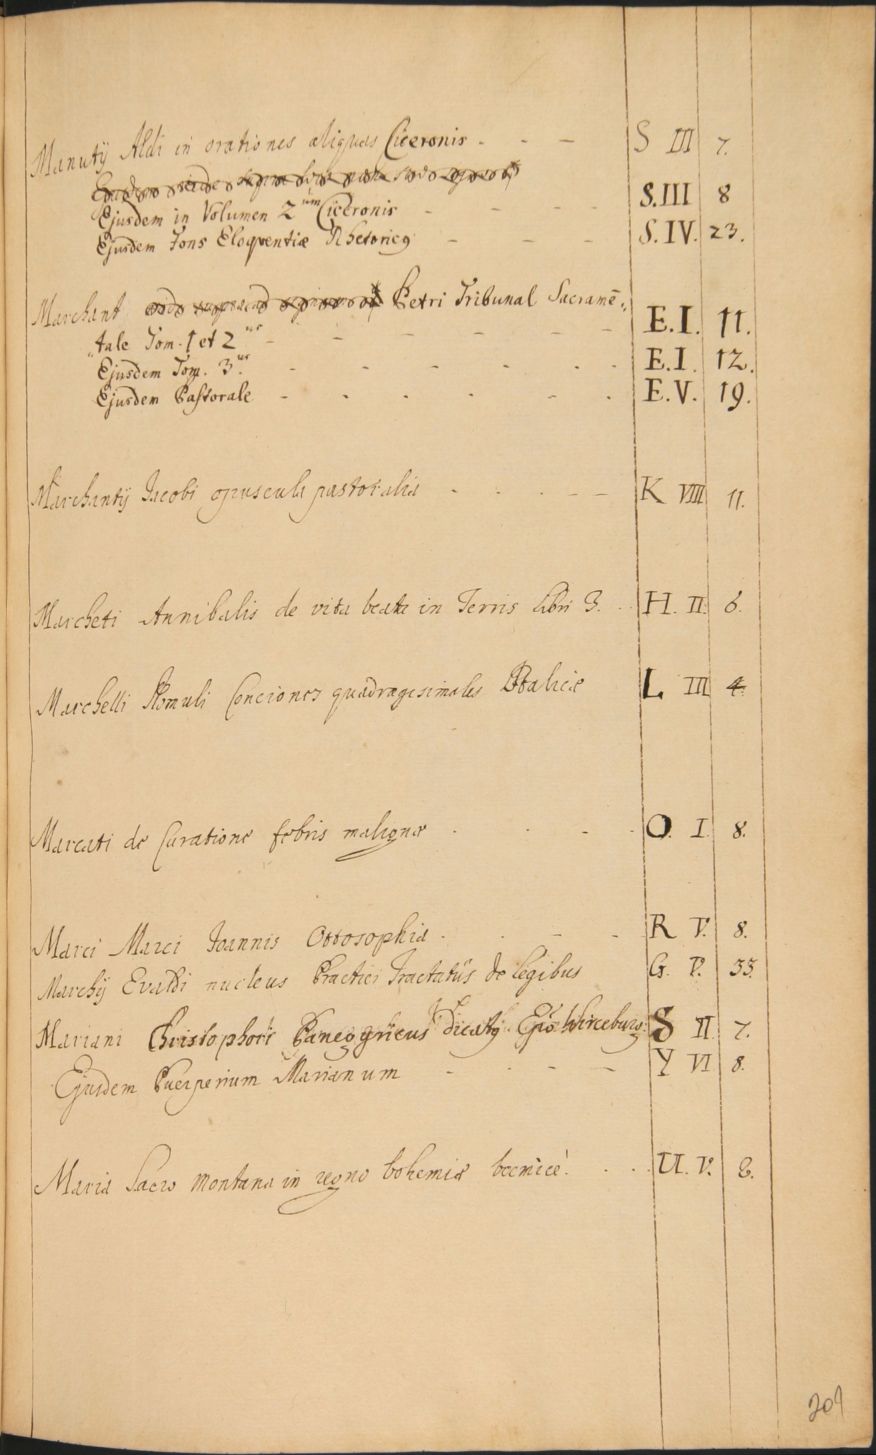 Manutÿ Aldi in orationes aliquas Ciceronis - - - S III 7.
Ejusdem in Volumen 2um Ciceronis - - - - S.III 8
Ejusdem Fons Eloquentiæ Rhetoricę - - - S.IV. 23.
Marchant Petri Tribunal Sacramē„
„tale Tom. 1 et 2us - - - - - - E.I. 11.
Ejusdem Tom. 3us - - - - - - E.I. 12.
Ejusdem Pastorale - - - - - - E.V. 19.
Marchantÿ Jacobi opuscula pastoralia - - - - - K VIII 11.
Marcheti Annibalis de vita beata in Terris libri 3. . . H. II. 6.
Marchelli Romuli Conciones quadragesimales Italicæ L III 4.
Marcati de Curatione febris malignæ - - - - O. I. 8.
Marci Marci Joannis Ottosophia - - - - R V. 8.
Marchÿ Evaldi nucleus Practici Tractatûs de legibus G. V. 33.
Mariani Christophori Panegyricus dicatÿ Epō Wirceburg: S II 7.
Ejusdem Puerperium Marianum - - - - Y VI 8.
Maria Sacro Montana in regno bohemiæ boemicè. . . . U. V. 8.
201